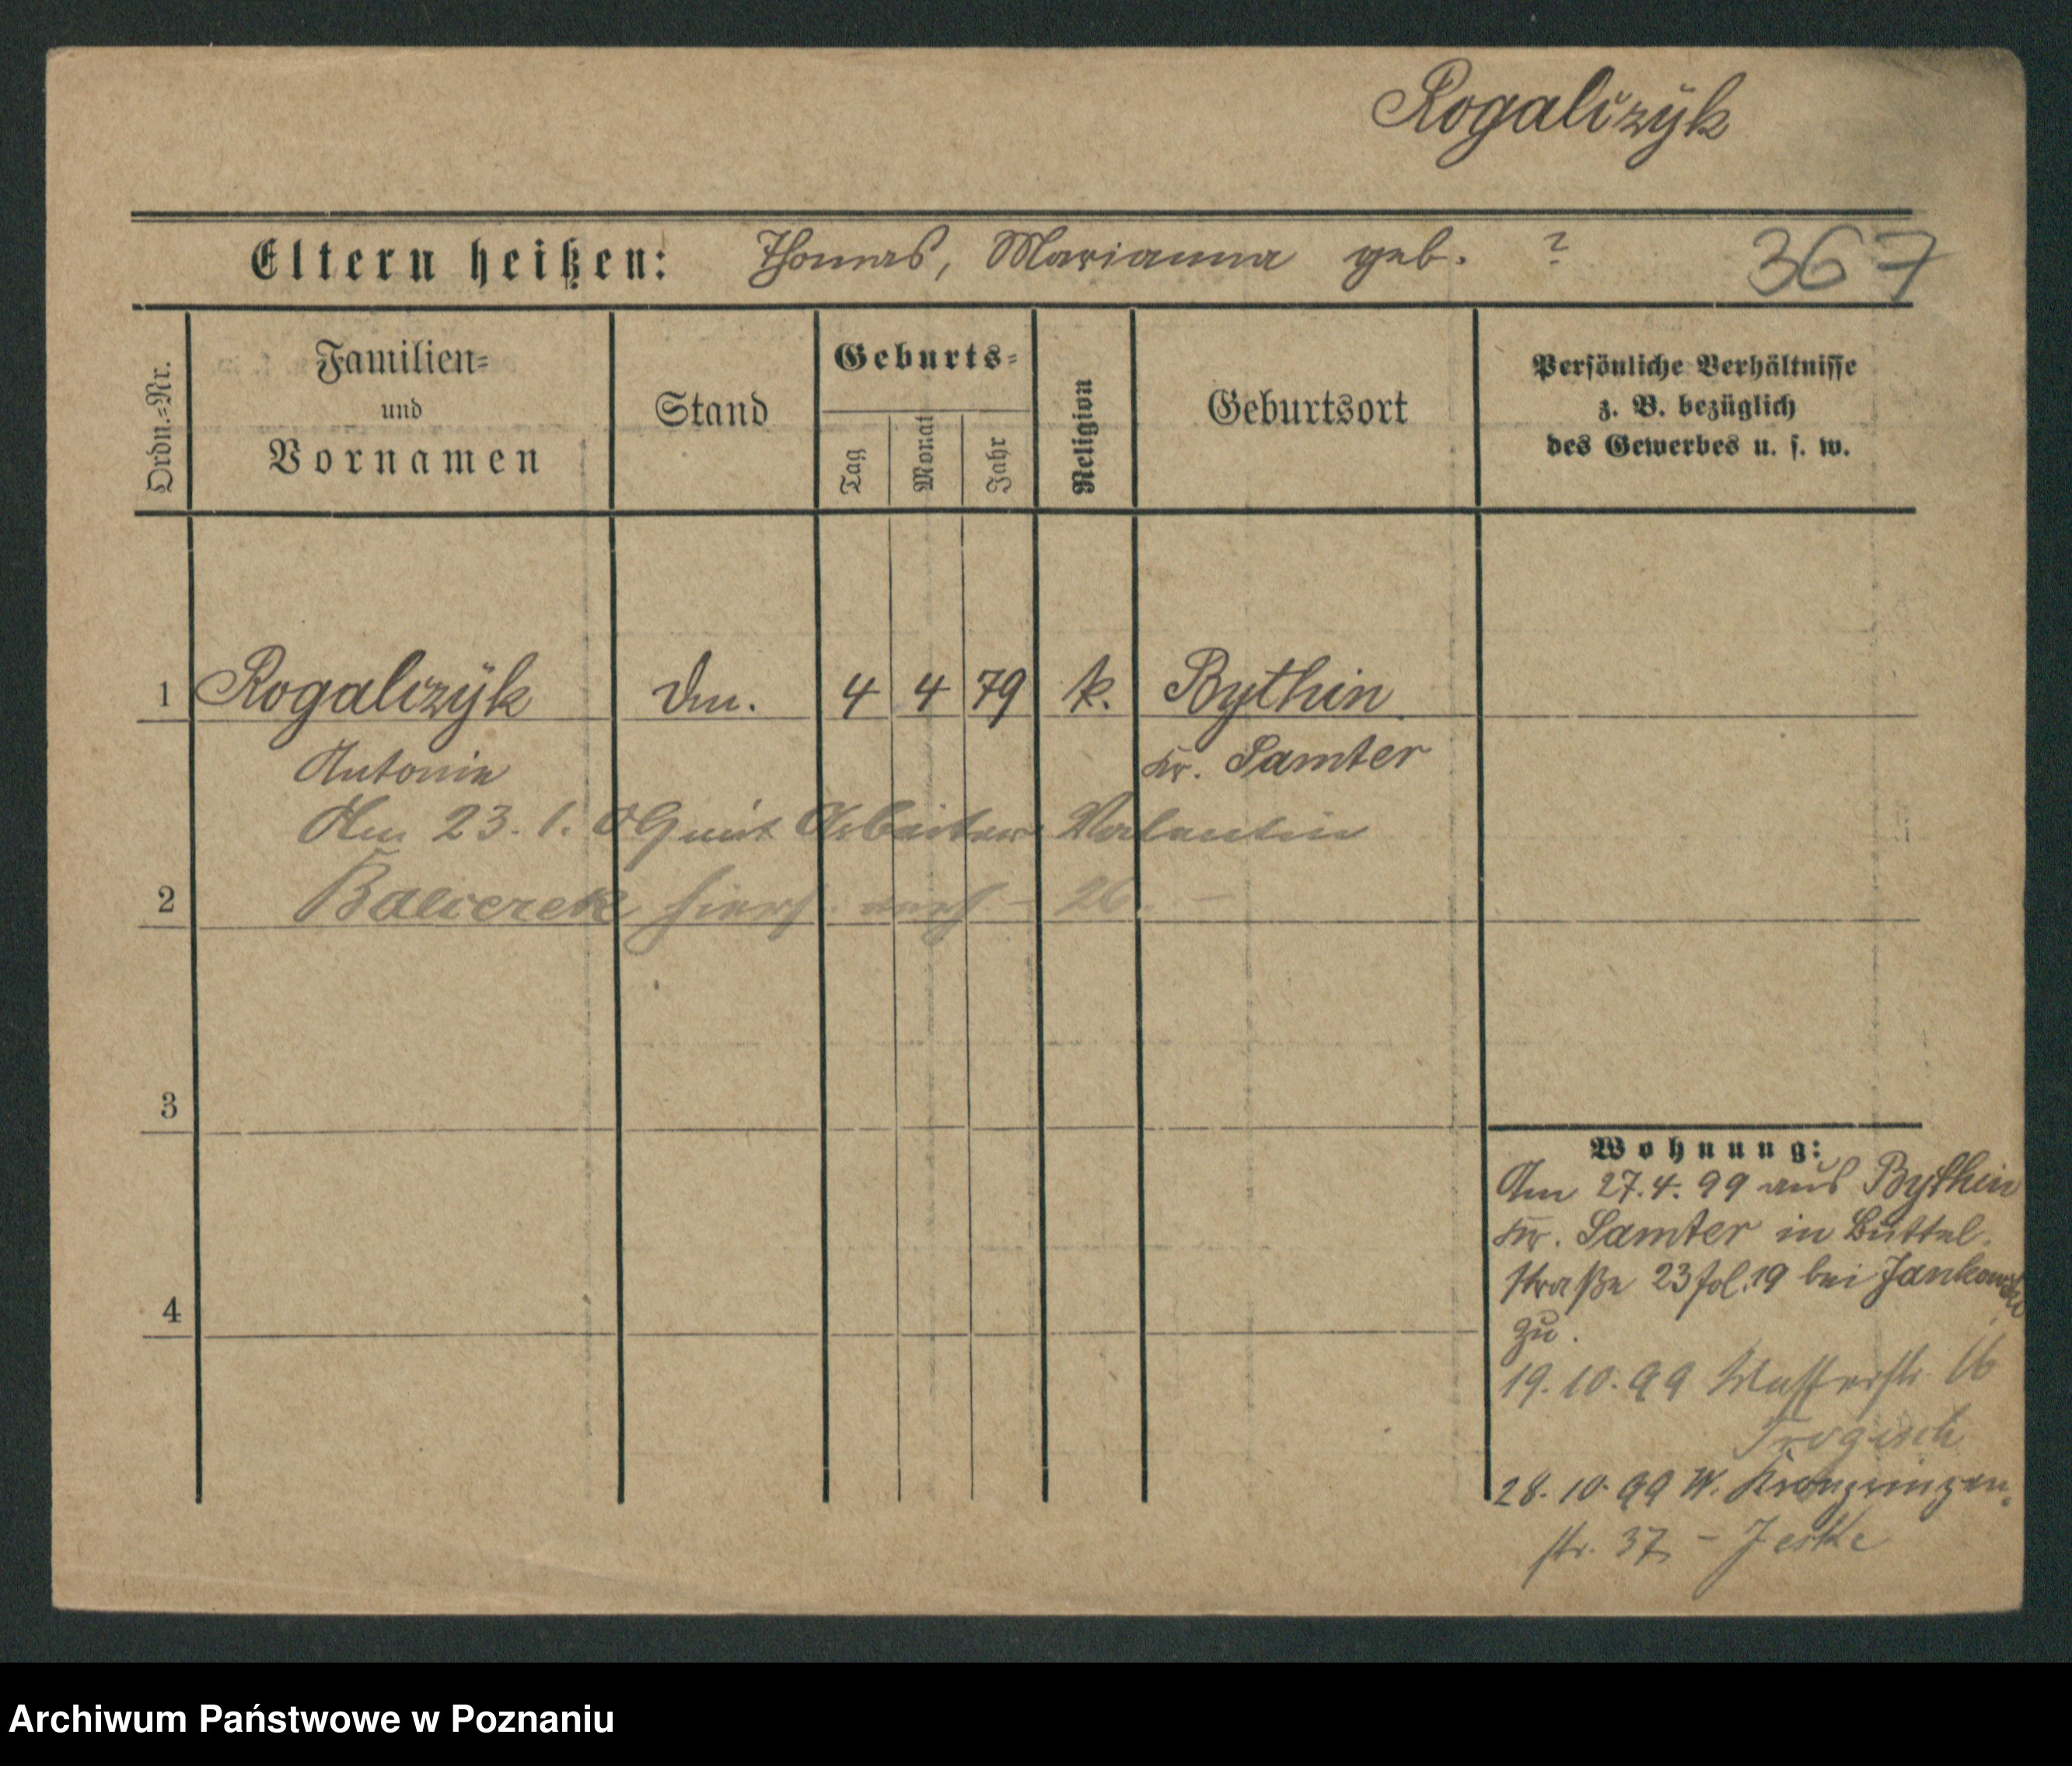 Rogalczyk
Eltern heißen: Thomas, Marianna geb. ?
367
Ordn.=Nr.
Familien=
und
Vornamen
Stand
Geburts=
Tag
Monat
Jahr
Religion
Geburtsort
Persönliche Verhältnisse
z. B. bezüglich
des Gewerbes u. s. w.
1 Rogalczyk 4 4 79 k. Bythin
Antonie Kr. Samter
Am 23. 1. 09 mit Arbeiter Valentin
2
hiers. verh - 26. -
3
4
Wohnung:
Am 27.4.99 aus Bythin
Kr. Samter in Büttel-
straße 23 fol. 19 bei Jankowski
zu.
19.10.99 Wasserstr.
28.10.99 W. Kronprinzen-
str. 37 - Jeske
Archiwum Państwowe w Poznaniu